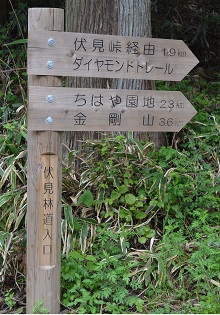 伏見峠経由 1.9km
ダイヤモンドトレール
ちはや園地 2.3km
金剛山 3.6km
伏見林道入口